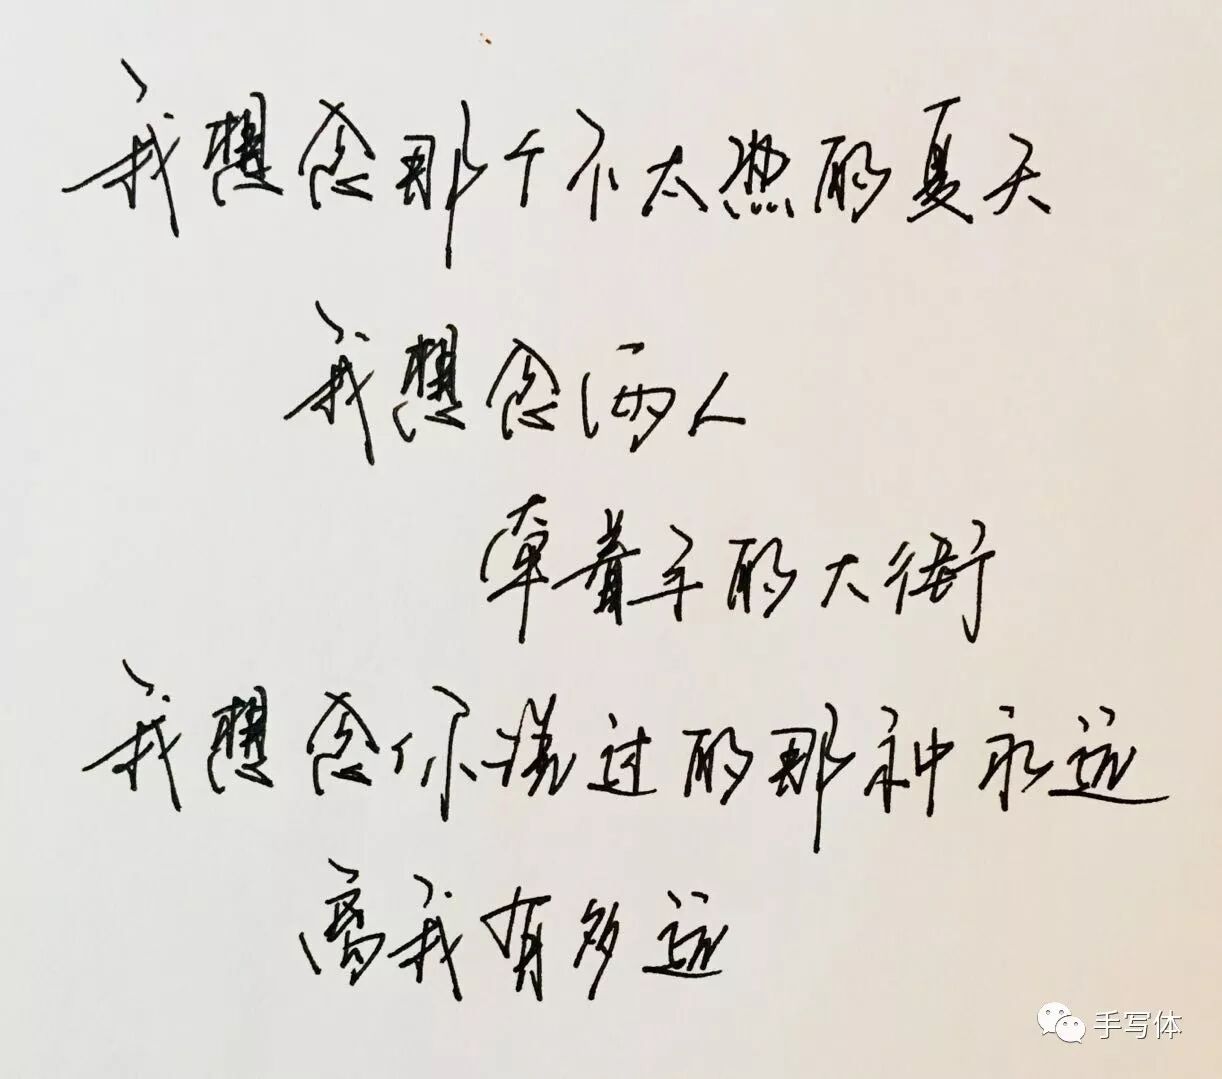 我想念那个不太热的夏天
我想念两人
牵着手的大街
我想念你说过的那种永远
离我有多远
手写体